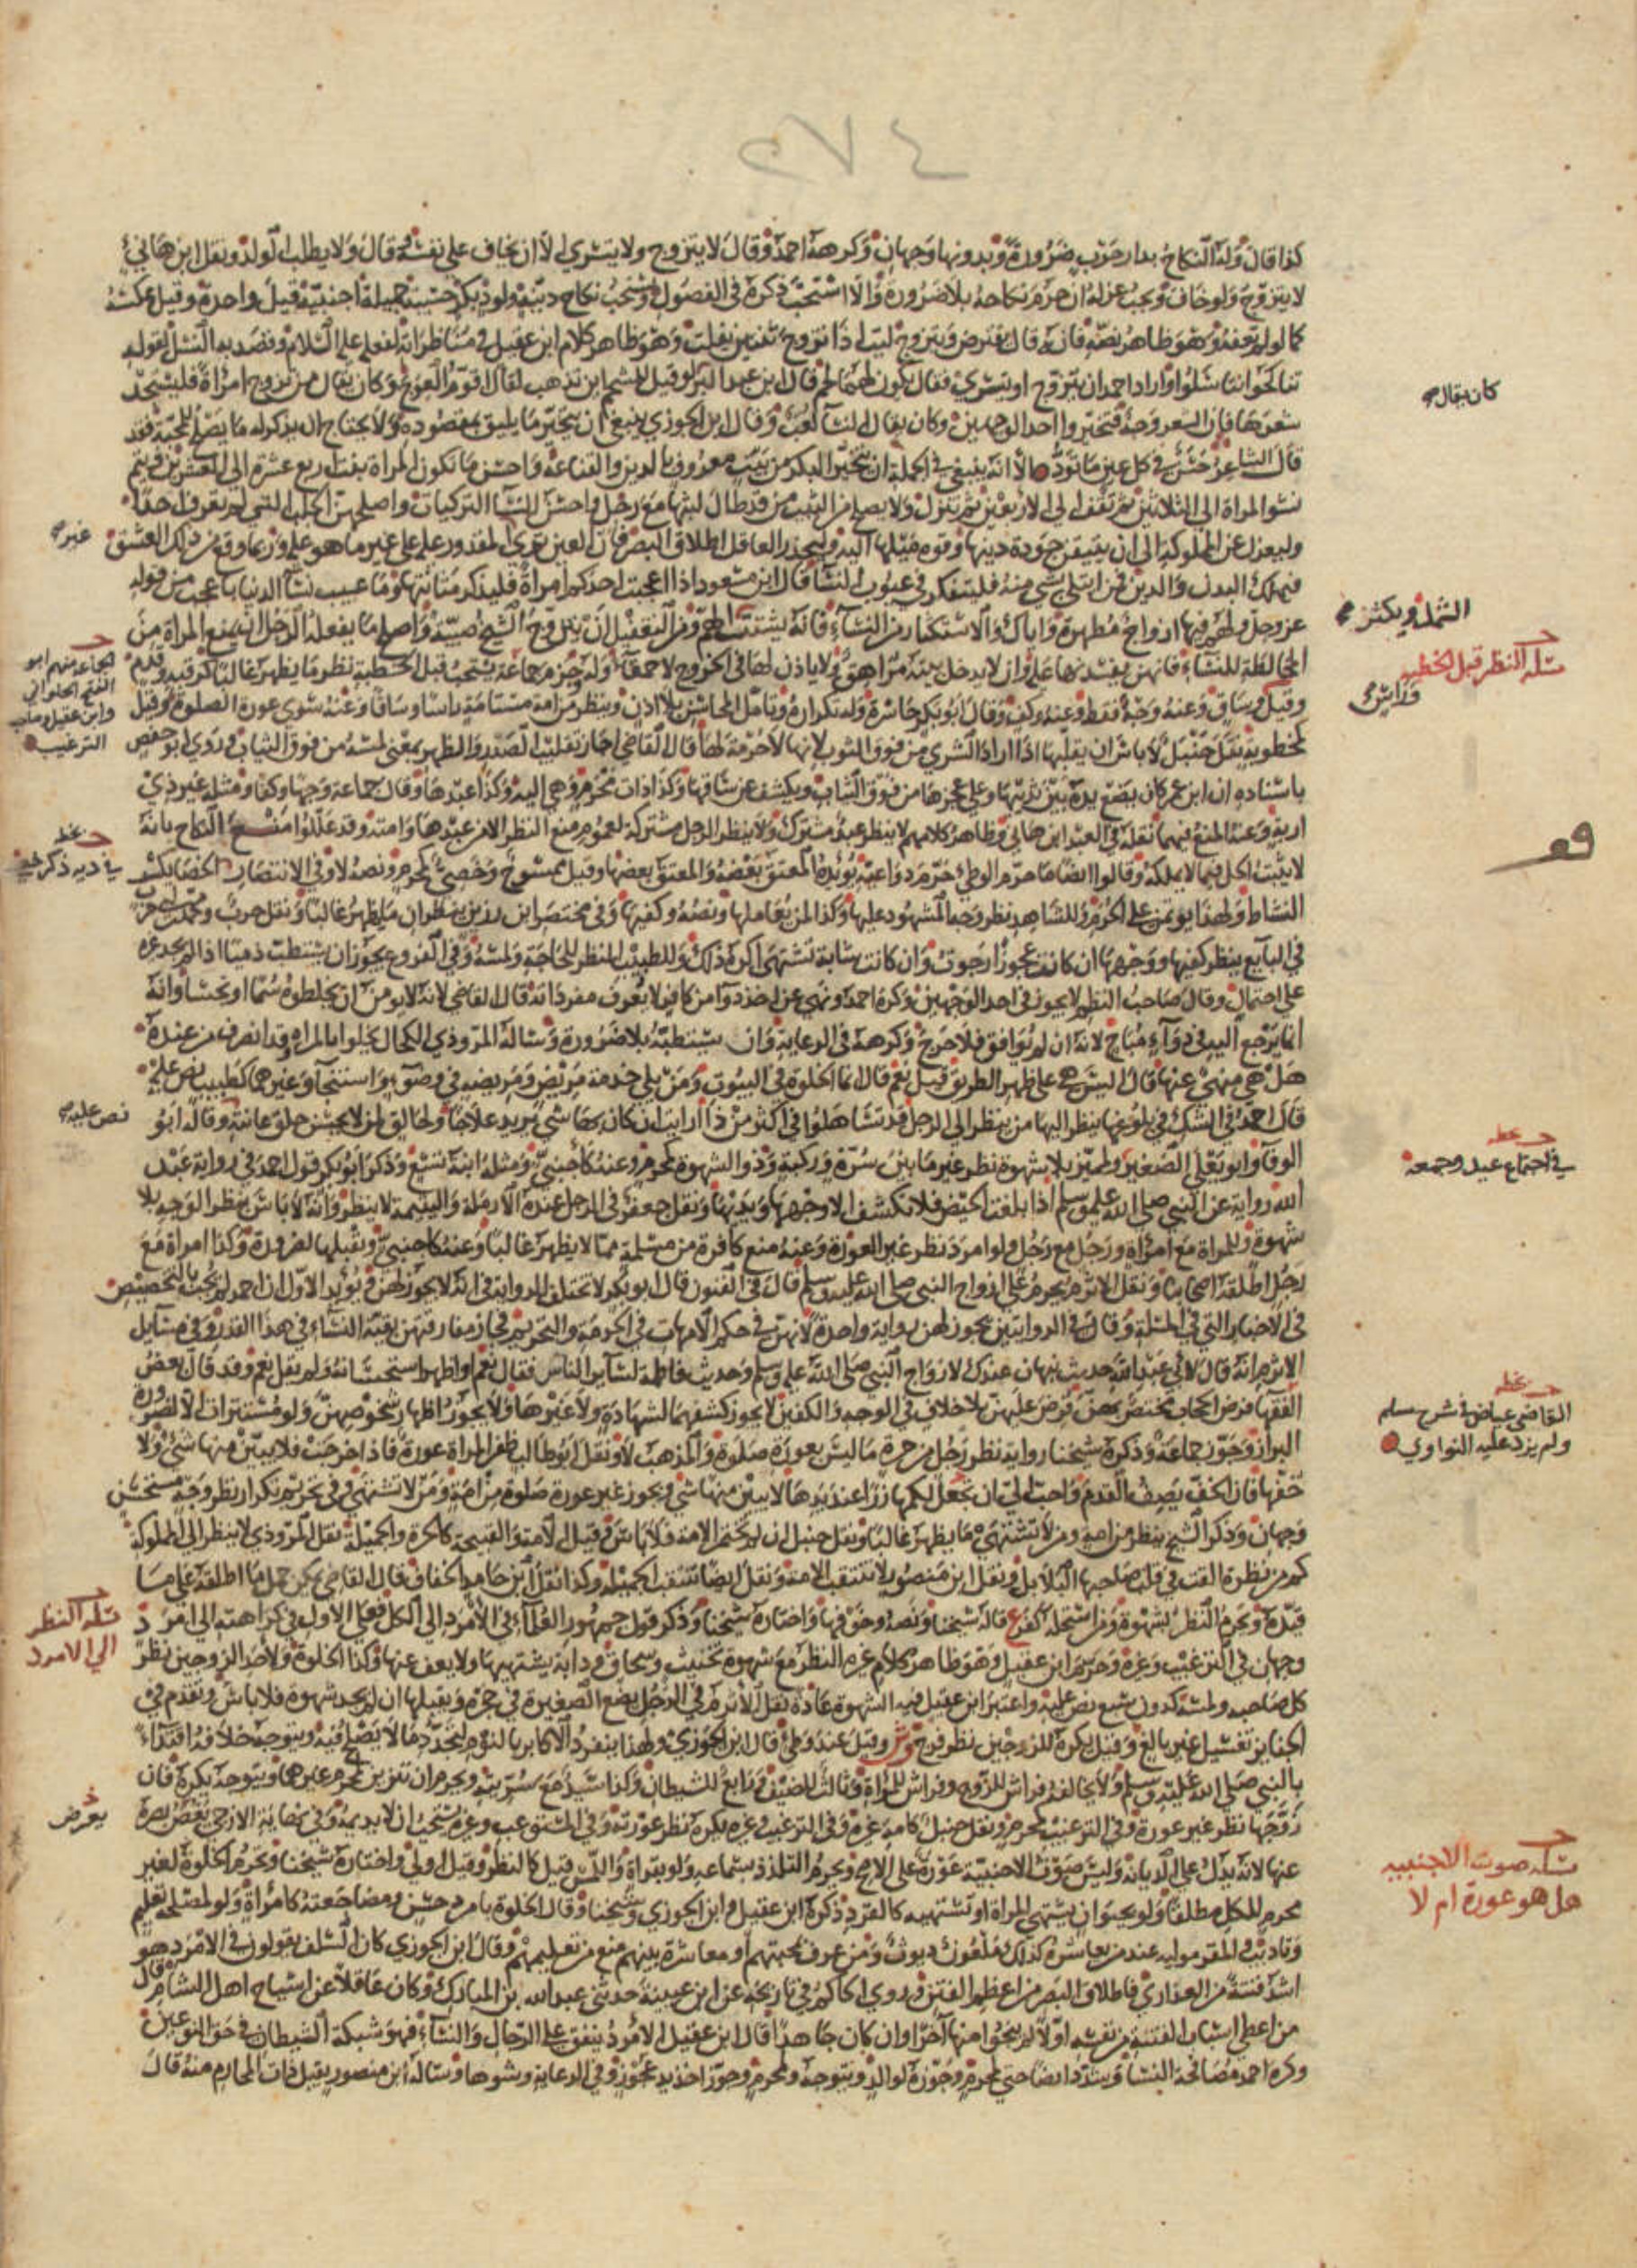 ٤٧٥
كذا قال وله النكاح بدار حرب ضرورة وبدونها وجهان وكرهه احمد وقال لا يتزوج ولا يتسرى الا ان يخاف على نفسه وقال ولا يطلب الولد ونقل ابن هانئ
لا يتزوج ولو خاف ويجب عزله ان حرم نكاحه بلا ضرورة والا استحب ذكره في الفصول ويستحب نكاح دينة ولود بكر حسيبة جميلة اجنبية قيل واحدة وقيل عكسه
كما لو لم تعفه وهو ظاهر نصه فانه قال يقترض ويتزوج ليت اذا تزوج ثنتين يفلت وهو ظاهر كلام ابن عقيل في مناظراته لفعله عليه السلام وقصد به النسل لقوله
تناكحوا تناسلوا واراد احمد ان يتزوج او يتسرى فقال يكون لهما لحم قال ابن عبد البر لو قيل للشحم اين تذهب لقال اقوم العوج وكان يقال من تزوج امرأة فليستجد
كان يقال
شعرها فان الشعر وجه فتخيروا احد الوجهين وكان يقال النسا لعب وقال ابن الجوزي ينبغي ان يتخير ما يليق بمقصوده ولا يحتاج ان يذكر له ما يصلح للمحبة فقد
قال الشاعر حسن في كل عين ما تود الا انه ينبغي في الجملة ان يتخير البكر من بيت معروف بالدين والقناعة واحسن ما تكون المراة بنت اربع عشرة الى العشرين ويتم
نشو المراة الى الثلاثين ثم تقف الى الاربعين ثم تنزل ولا يصلح من الثيب من قد طال لبثها مع رجل واحسن النسا التركيات واصلحهن الجلب التي لم تعرف احدا
وليعزل عن المملوكة الى ان يتيقن جودة دينها وقوة ميلها اليه وليحذر العاقل اطلاق البصر فان العين ترى غير المقدور عليه على غير ما هو عليه وربما وقع من ذلك العشق
غير
فيهلك البدن والدين فمن ابتلي بشي منه فليتفكر في عيوب النسا قال ابن مسعود اذا اعجبت احدكم امرأة فليذكر مناتنها وما عيب نسا الدنيا باعجب من قوله
عز وجل ولهم فيها ازواج مطهرة واياك والاستكثار من النساء فانه يشتت الشمل ويكثر الهم ومن التغفيل ان يتزوج الشيخ صبية واصلح ما يفعله الرجل ان يمنع المراة من
الشمل ويكثر
المخالطة للنساء فانهن يفسدنها عليه وان لا يدخل بيته مراهق ولا ياذن لها في الخروج لا حمقاء وله وجزم جماعة يستحب قبل الخطبة نظر ما يظهر غالبا كرقبة وقدم
مسلة النظر قبل الخطبة
الجماعة منهم ابو
الفتح الحلواني
وابن عقيل وصاحب
الترغيب
وقيل وراس وساق وعنه وجه فقط وعنه وكف وقال ابو بكر حاسرة وله تكراره وتامل المحاسن بلا اذن وينظر من امة مستامة راسا وساقا وعنه سوى عورة الصلوة وقيل
وراس
كمخطوبة نقل حنبل لا باس ان يقلبها اذا اراد الشري من فوق الثوب لانها لا حرمة لها قال القاضي اجاز تقليب الصدر والظهر بمعنى لمسه من فوق الثياب وروى ابو حفص
باسناده ان ابن عمر كان يضع يده بين ثدييها وعلى عجزها من فوق الثياب ويكشف عن ساقها وكذا ذات محرم وهي اليه وكذا عبدها وقال جماعة وجها وكفا ومثله غير ذي
اربة وعنه المنع فيهما نقله في العبد ابن هانى وظاهر كلامهم لا ينظر عبد مشترك ولا ينظر الرجل مشتركة لعموم منع النظر الا من عبدها وامته وقد عللوا منع النكاح بانه
لا يثبت الحل فيما لا يملكه وقالوا ايضا ما حرم الوطئ حرم دواعيه يؤيده المعتق بعضه والمعتق بعضها وقيل ممسوح وخصي كمحرم ونصه لا وفي الانتصار الخصا يكسر
النشاط ولهذا يوتمن على الحرم وللشاهد نظر وجه المشهود عليها وكذا لمن يعاملها ونصه وكفيها وفي مختصر ابن رزين ينظران ما يظهر غالبا ونقل حرب ومحمد بن ابي حرب
في البائع ينظر كفيها ووجهها ان كانت عجوزا رجوت وان كانت شابة تشتهى اكره ذلك وللطبيب النظر للحاجة ولمسه وفي الفروع يجوز ان يستطب ذميا اذا لم يجد غيره
على احتمال وقال صاحب النظم لا يجوز في احد الوجهين وكره احمد ونهى عن اخذ دوا من كافر لا يعرف مفرداته قال القاضي لانه لا يومن ان يخلطوه سما او نجسا وانه
انما يرجع اليه في دواء مباح لانه ان لم يوافق فلا حرج وكرهه في الرعاية وان يستطبه بلا ضرورة وسأله المروذي الكحال يخلو بالمراه وقد انصرف من عنده
هل هي منهي عنها قال اليس هي على ظهر الطريق قيل نعم قال انما الخلوة في البيوت ومن يلي خدمة مريض ومريضة في وضوء واستنجاء وغيرهما كطبيب نص عليه
قال احمد في الشك في بلوغها ينظر اليها من ينظر الى الرجل قد تساهلوا في اكثر من ذا ارايت ان كان بها شي يريد علاجا ولحالق لمن لا يحسن حلق عانته وقاله ابو
نص عليه
الوفا وابو يعلى الصغير ولمميز بلا شهوة نظر غير ما بين سرة وركبة وذو الشهوة كمحرم وعنه كاجنبي ومثله ابنة تسع وذكر ابو بكر قول احمد في رواية عبد
بخطه
في اجتماع عيد وجمعة
الله رواية عن النبي صلى الله عليه وسلم اذا بلغت الحيض فلا تكشف الا وجهها ويديها ونقل جعفر في الرجل عنده الارملة واليتيمة لا ينظر وانه لا باس بنظر الوجه بلا
شهوة وللمراة مع امرأة ورجل مع رجل ولو امرد نظر غير العورة وعنه منع كافرة من مسلمة مما لا يظهر غالبا وعنه كاجنبي وتقبلها لضرورة وكذا امراة مع
رجل اطلقه اصحابنا ونقل الاثرم يحرم على ازواج النبي صلى الله عليه وسلم قال في الفنون قال ابو بكر لا تختلف الرواية في انه لا يجوز لهن ويؤيد الاول ان احمد لم يجب بالتخصيص
في الاخبار التي في المسلة وقال في الروايتين يجوز لهن رواية واحدة لانهن في حكم الامهات في الحرمة والتحريم فجاز مفارقتهن بقية النساء في هذا القدر وفي مسايل
الاثرم انه قال لابي عبد الله حديث نبهان عندك لازواج النبي صلى الله عليه وسلم وحديث فاطمة لسائر الناس فقال نعم او اظهر استحسانه ولم يقل نعم وقد قال بعض
بخطه
القاضي عياض في شرح مسلم
ولم يزد عليه النواوي
الفقها فرض الحجاب مختص بهن فرض عليهن بلا خلاف في الوجه والكفين لا يجوز كشفهما لشهادة ولا غيرها ولا يجوز اظهار شخوصهن ولو مستترات الا لضرورة
البراز وجوز جماعة وذكره شيخنا رواية نظر رجل من حرة ما ليس بعورة صلوة والمذهب لا ونقل ابو طالب ظفر المراة عورة فاذا خرجت فلا يبين منها شئ ولا
خفها فان الخف يصف القدم واحب الي ان تجعل لكمها زرا عند يدها لا يبين منها شي ويجوز غير عورة صلوة من امة ومن لا تشتهى وفي تحريم تكرار نظر وجه مستحسن
وجهان وذكر الشيخ ينظر من امة ومن لا تشتهى ما يظهر غالبا ونقل حنبل ان لم تختمر الامة فلا باس وقيل الامة والقبيحة كالحرة والجميلة نقل المروذي لا ينظر الى المملوكة
كم من نظرة القت في قلب صاحبها البلابل ونقل ابن منصور لا تنتقب الامة ونقل ايضا تنتقب الجميلة وكذا نقل ابن حامد الخفاف قال القاضي يمكن حمل ما اطلقه على ما
قيده ويحرم النظر بشهوة ومن استحله كفرع قاله شيخنا ونصه وخوفها واختاره شيخنا وذكر قول جمهور العلماء في الامرد الى الكل فعلى الاول في كراهته الى امرد
مسلة النظر
الى الامرد
وجهان في الترغيب وغيره وحرمه ابن عقيل وهو ظاهر كلام غيره النظر مع شهوة تخنيث وسحاق ودابة يشتهيها ولا يعف عنها وكذا الخلوة ولاحد الزوجين نظر
كل صاحبه ولمسه كدون سبع نص عليه واعتبر ابن عقيل فيه الشهوة عادة نقل الاثرم في الرجل يضع الصغيرة في حجره ويقبلها ان لم يجد شهوة فلا باس وتقدم في
الجنايز تغسيل غير بالغ وقيل يكره للزوجين نظر فرج وقيل عند وطئ قال ابن الجوزي ولهذا ينفرد الاكابر بالنوم لتجدد ما لا يصلح فيه ويتوجه خلافه اقتداء
بالنبي صلى الله عليه وسلم ولا يخالفه فراش للزوج وفراش للمراة وثالث للضيف ورابع للشيطان وكذا سيد مع سريته ويحرم ان تتزين لمحرم غيرهما ويتوجه يكره فان
زوجها نظر غير عورة وفي الترغيب كمحرم ونقل حنبل كامة غيره وفي الترغيب وغيره يكره نظر عورته وفي المستوعب وغيره يستحب ان لا يديمه وفي نهاية الازجي يغض بصره
يعرض
عنها لانه يدل على الديانة وليس صوت الاجنبية عورة على الاصح ويحرم التلذذ بسماعه ولو بقراة واللمس قيل كالنظر وقيل اولى واختاره شيخنا وتحرم الخلوة لغير
مسلة صوت الاجنبية
هل هو عورة ام لا
محرم للكل مطلقا ولو بحيوان يشتهي المراة او تشتهيه كالقرد ذكره ابن عقيل وابن الجوزي وشيخنا وقال الخلوة بامرد حسن ومضاجعته كامرأة ولو لمصلحة تعليم
وتاديب والمقر موليه عند من يعاشره كذلك ملعون ديوث ومن عرف بمحبتهم او معاشرة بينهم منع من تعليمهم وقال ابن الجوزي كان السلف يقولون في الامرد هو
اشد فتنة من العذارى فاطلاق البصر من اعظم الفتن وروى الحاكم في تاريخه عن ابن عيينة حدثني عبد الله بن المبارك وكان عاقلا عن اشياخ اهل الشام قال
من اعطى اسباب الفتنة من نفسه اولا لم ينجو منها آخرا وان كان جاهدا قال ابن عقيل الامرد ينفق على الرجال والنساء فهو شبكة الشيطان في حق النوعين
وكره احمد مصافحة النسا وشدد ايضا حتى لمحرم وجوزه لوالد ويتوجه ومحرم وجوز اخذ يد عجوز وفي الرعاية وشوها وسأله ابن منصور يقبل ذات المحارم منه قال